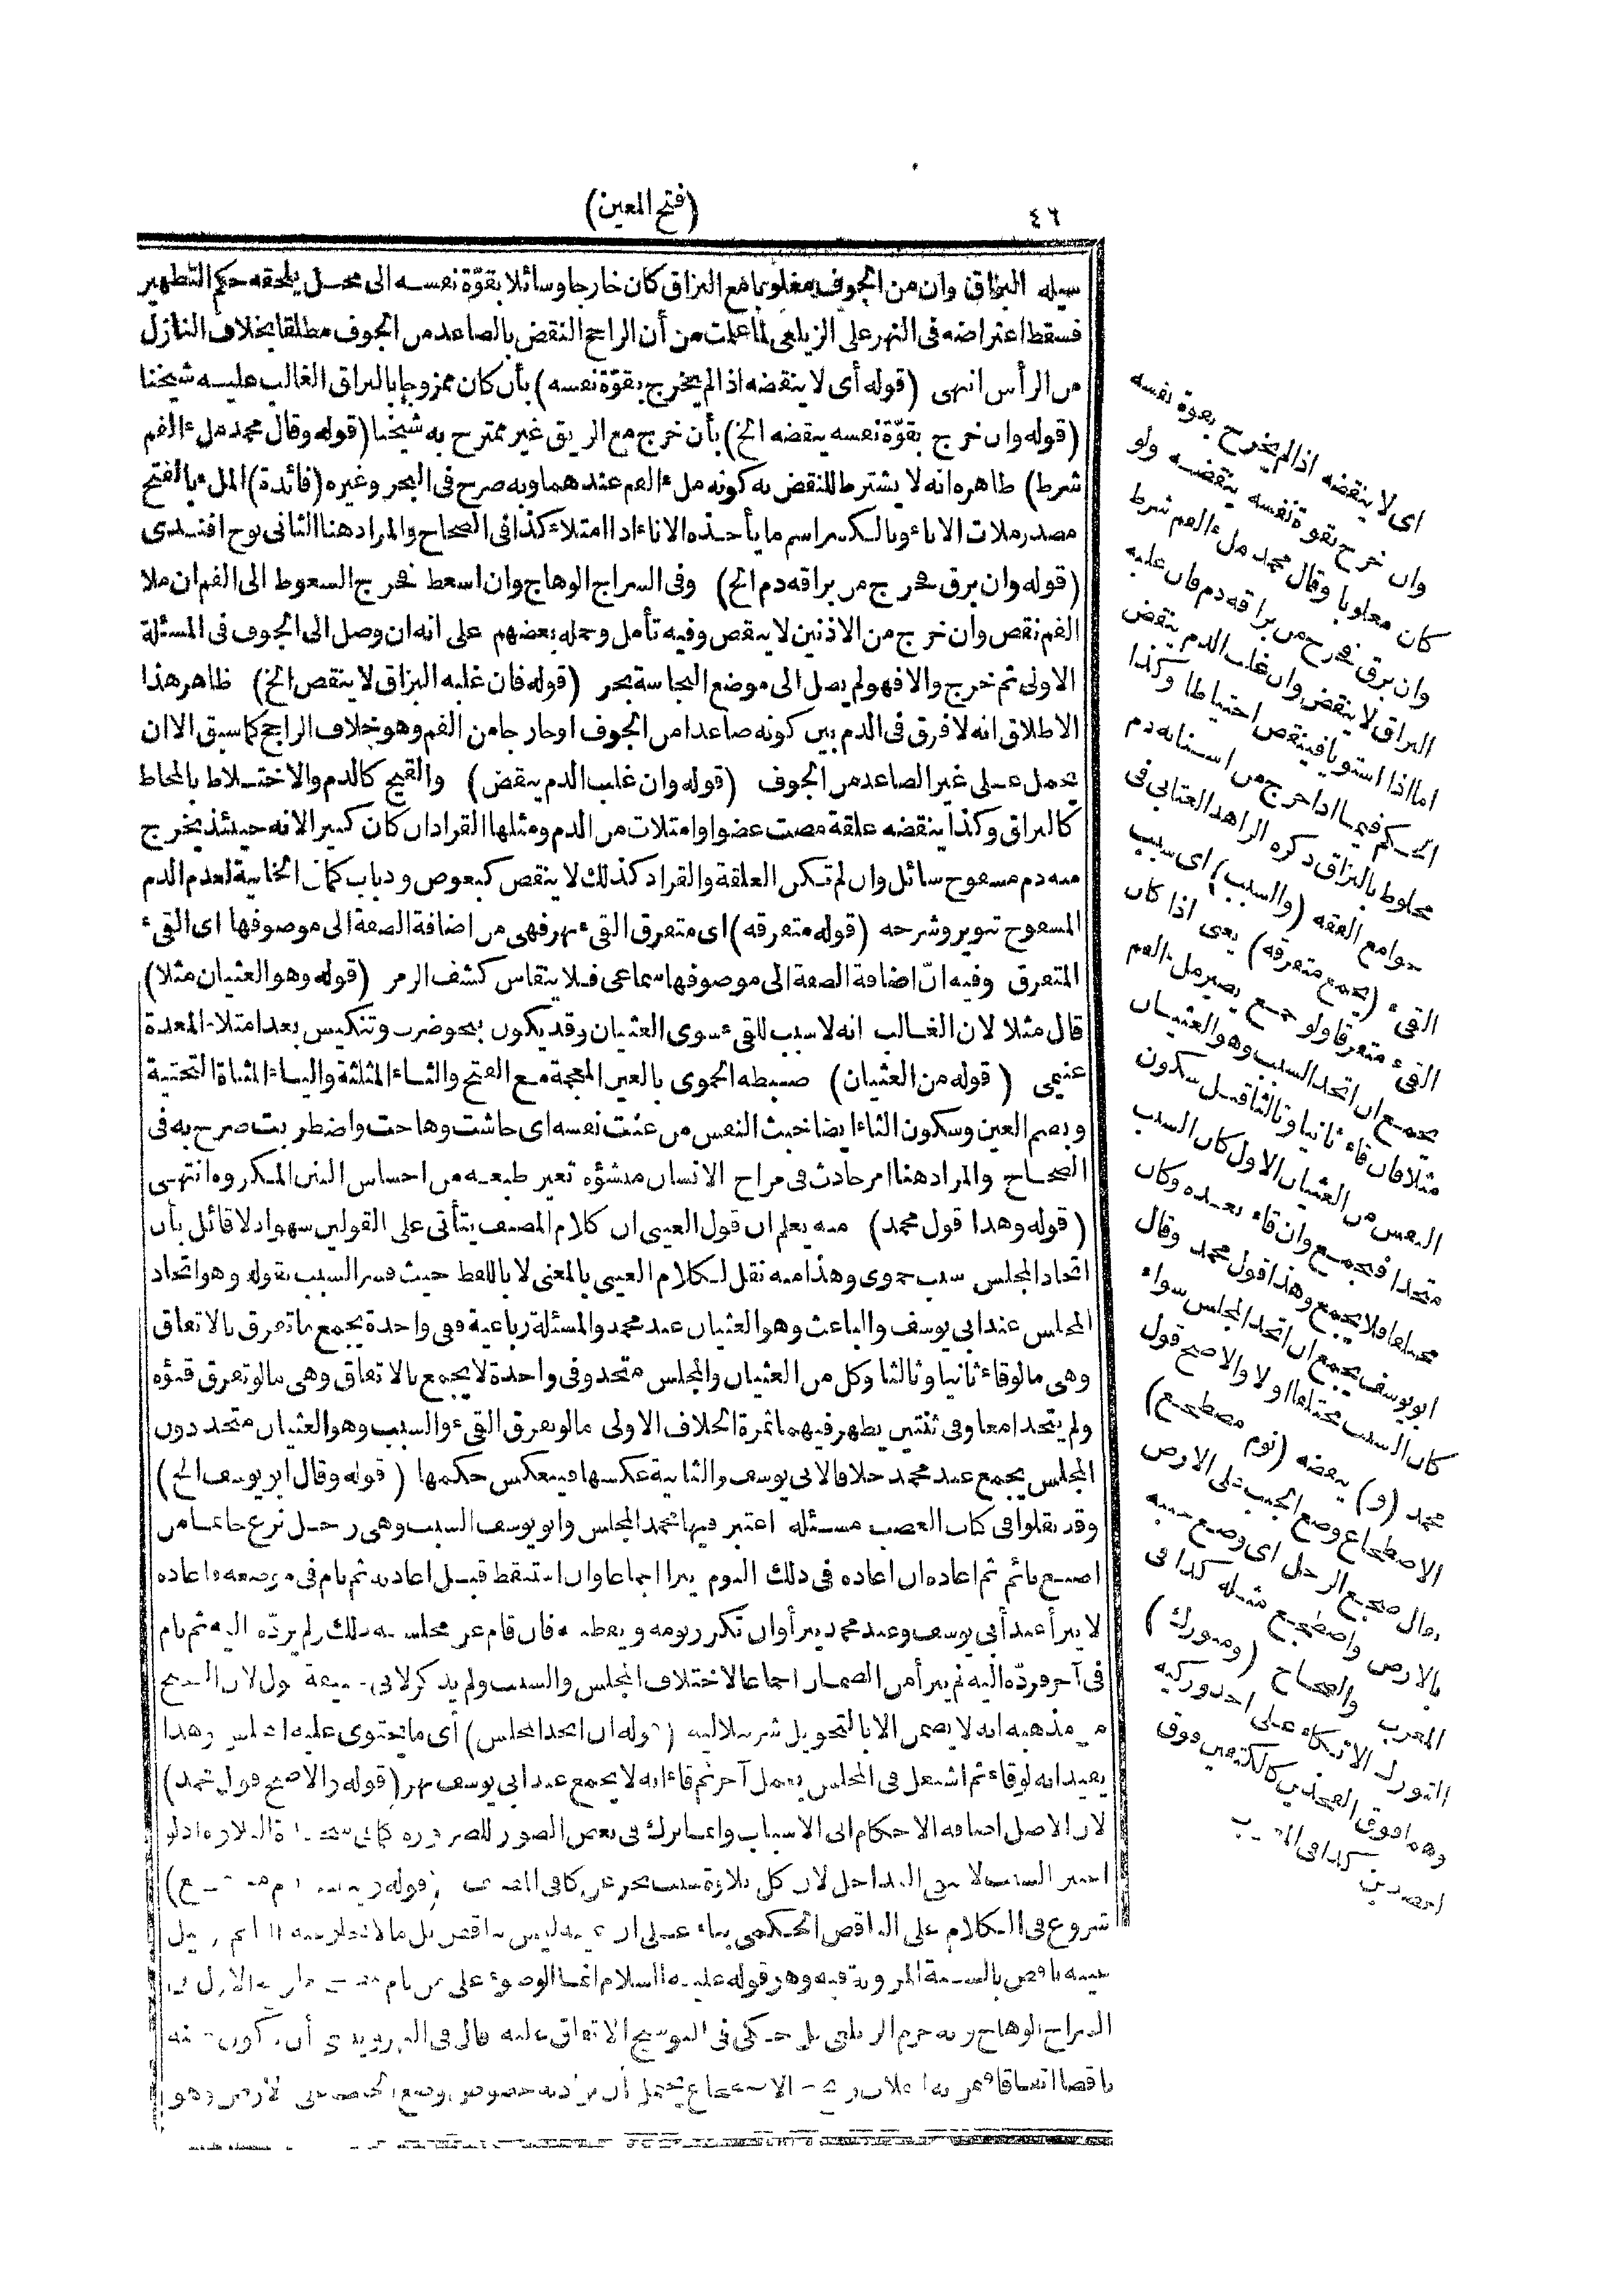 ٤٦
(فتح المعين)
سيله البزاق وان من الجوف مغلوبا مع البزاق كان خارجا وسائلا بقوّة نفسه الى محل يلحقه حكم التطهير
فسقط اعتراضه فى النهر على الزيلعى لما علمت من أن الراجح النقض بالصاعد من الجوف مطلقا بخلاف النازل
من الرأس انهى (قوله أى لا ينقضه اذا لم يخرج بقوّة نفسه) بأن كان ممزوجا بالبزاق الغالب عليه شيخنا
(قوله وان خرج بقوّة نفسه ينقضه الخ) بأن خرج مع الريق غير ممتزج به شيخنا (قوله وقال محمد ملء الفم
شرط) ظاهره انه لا يشترط للنقض به كونه ملء الفم عندهما وبه صرح فى البحر وغيره (فائدة) الملء بالفتح
مصدر ملات الاناء وبالكسر اسم ما يأخذه الاناء اذا امتلاء كذا فى الصحاح والمراد هنا الثانى نوح افندى
(قوله وان بزق فخرج من بزاقه دم الخ) وفى السراج الوهاج وان اسعط فخرج السعوط الى الفم ان ملا
الفم نقض وان خرج من الاذنين لا ينقض وفيه تأمل وحمله بعضهم على انه ان وصل الى الجوف فى المسئلة
الاولى ثم خرج والا فهو لم يصل الى موضع النجاسة بحر (قوله فان غلبه البزاق لا ينقض الخ) ظاهر هذا
الاطلاق انه لا فرق فى الدم بين كونه صاعدا من الجوف او خارجا من الفم وهو خلاف الراجح كما سبق الا ان
يحمل على غير الصاعد من الجوف (قوله وان غلب الدم ينقض) والقيح كالدم والاختلاط بالمخاط
كالبزاق وكذا ينقضه علقة مصت عضوا وامتلات من الدم ومثلها القراد ان كان كبيرا لانه حينئذ يخرج
منه دم مسفوح سائل وان لم تكن العلقة والقراد كذلك لا ينقض كبعوض وذباب كما فى الخانية لعدم الدم
المسفوح تنوير وشرحه (قوله متفرقه) اى متفرق القىء نهر فهى من اضافة الصفة الى موصوفها اى القىء
المتفرق وفيه انّ اضافة الصفة الى موصوفها سماعى فلا ينقاس كشف الرمز (قوله وهو الغثيان مثلا)
قال مثلا لان الغالب انه لا سبب للقىء سوى الغثيان وقد يكون بنحو ضرب وتنكيس بعد امتلاء المعدة
غنيمى (قوله من الغثيان) ضبطه الحموى بالغين المعجمة مع الفتح والثاء المثلثة والياء المثناة التحتية
وبضم الغين وسكون الثاء ايضا خبث النفس من غثت نفسه اى جاشت وهاجت واضطربت صرح به فى
الصحاح والمراد هنا امر حادث فى مزاج الانسان منشؤه تغير طبعه من احساس النتن المكروه انتهى
(قوله وهذا قول محمد) منه يعلم ان قول العينى ان كلام المصنف يتأتى على القولين سهو اذ لا قائل بأن
اتحاد المجلس سبب حموى وهذا منه نقل لكلام العينى بالمعنى لا باللفظ حيث فسر السبب بقوله وهو اتحاد
المجلس عند ابى يوسف والباعث وهو الغثيان عند محمد والمسئلة رباعية ففى واحدة يجمع ما تفرق بالاتفاق
وهى ما لو قاء ثانيا وثالثا وكل من الغثيان والمجلس متحد وفى واحدة لا يجمع بالاتفاق وهى ما لو تفرق قيؤه
ولم يتحدا معا وفى ثنتين يظهر فيهما ثمرة الخلاف الاولى ما لو تفرق القىء والسبب وهو الغثيان متحد دون
المجلس يجمع عند محمد خلافا لابى يوسف والثانية عكسها فينعكس حكمها (قوله وقال ابو يوسف الخ)
وقد نقلوا فى كتاب الغصب مسئلة اعتبر فيها محمد المجلس وابو يوسف السبب وهى رجل نزع خاتما من
اصبع نائم ثم اعاده ان اعاده فى ذلك النوم يبرا اجماعا وان استيقظ قبل اعادته ثم نام فى موضعه فاعاده
لا يبرأ عند أبى يوسف وعند محمد يبرأ وان تكرر نومه ويقظته فان قام عن مجلسه ذلك ولم يردّه اليه ثم نام
فى آخر فردّه اليه لم يبرأ من الضمان اجماعا لاختلاف المجلس والسبب ولم يذكر لابى حنيفة قول لان الصحيح
من مذهبه انه لا يضمن الا بالتحويل شرنبلالية (قوله ان اتحد المجلس) أى ما يحتوى عليه المجلس وهذا
يفيد انه لو قاء ثم اشتغل فى المجلس بعمل آخر ثم قاء انه لا يجمع عند ابى يوسف نهر (قوله والاصح قول محمد)
لان الاصل اضافة الاحكام الى الاسباب وانما ترك فى بعض الصور للضرورة كما فى سجدة التلاوة اذ لو
اعتبر السبب لانتفى التداخل لان كل تلاوة سبب بحر عن كافى
شروع فى الكلام على الناقض الحكمى بناء على ان عينه ليس بناقض بل ما لا يخلو عنه النائم وقيل
عينه ناقض بالسنة المروية فيه وهو قوله عليه السلام انما الوضوء على من نام
السراج الوهاج وبه جزم الزيلعى بل حكى فى التوشيح الاتفاق عليه قال فى النهر
ناقضا اتفاقا الاضطجاع يحتمل أن يراد به خصوص وضع الجنب على الارض وهو
اى لا ينقضه اذا لم يخرج بقوة نفسه
وان خرج بقوة نفسه ينقضه ولو
كان مغلوبا وقال محمد ملء الفم شرط
وان بزق فخرج من بزاقه دم فان غلبه
البزاق لا ينقض وان غلب الدم ينقض
اما اذا استويا فينقض احتياطا وكذا
الحكم فيما اذا خرج من اسنانه دم
مخلوط بالبزاق ذكره الزاهد العتابى فى
جوامع الفقه (والسبب) اى سبب
القىء (يجمع متفرقه) يعنى اذا كان
القىء متفرقا ولو جمع يصير ملء الفم
يجمع ان اتحد السبب وهو الغثيان
مثلا فان قاء ثانيا وثالثا قبل سكون
النفس من الغثيان الاول كان السبب
متحدا فيجمع وان قاء بعده وكان
مختلفا فلا يجمع وهذا قول محمد وقال
ابو يوسف يجمع ان اتحد المجلس سواء
كان السبب مختلفا اولا والاصح قول
محمد (و) ينقضه (نوم مضطجع)
الاضطجاع وضع الجنب على الارض
يقال ضجع الرجل اى وضع جنبه
بالارض واضطجع مثله كذا فى
المغرب والصحاح (ومتورك)
التورك الاتكاء على احد وركيه
وهما فوق الفخذين كالكتفين فوق
العضدين كذا فى المغرب